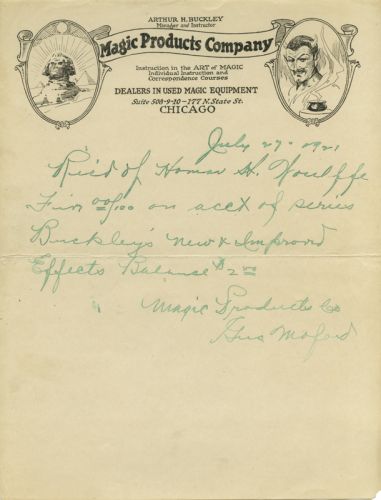 ARTHUR H. BUCKLEY
Manager and Instructor
Magic Products Company
Instruction in the ART of MAGIC
Individual Instruction and
Correspondence Courses
DEALERS IN USED MAGIC EQUIPMENT
Suite 508-9-10-177 N. State St.
CHICAGO
July 27 - 1921
Rec'd of Homer H.
Five 00/100 on acct of series
Buckley's New & Improvd
Effects Balance $2 00
Magic Products Co
Gus